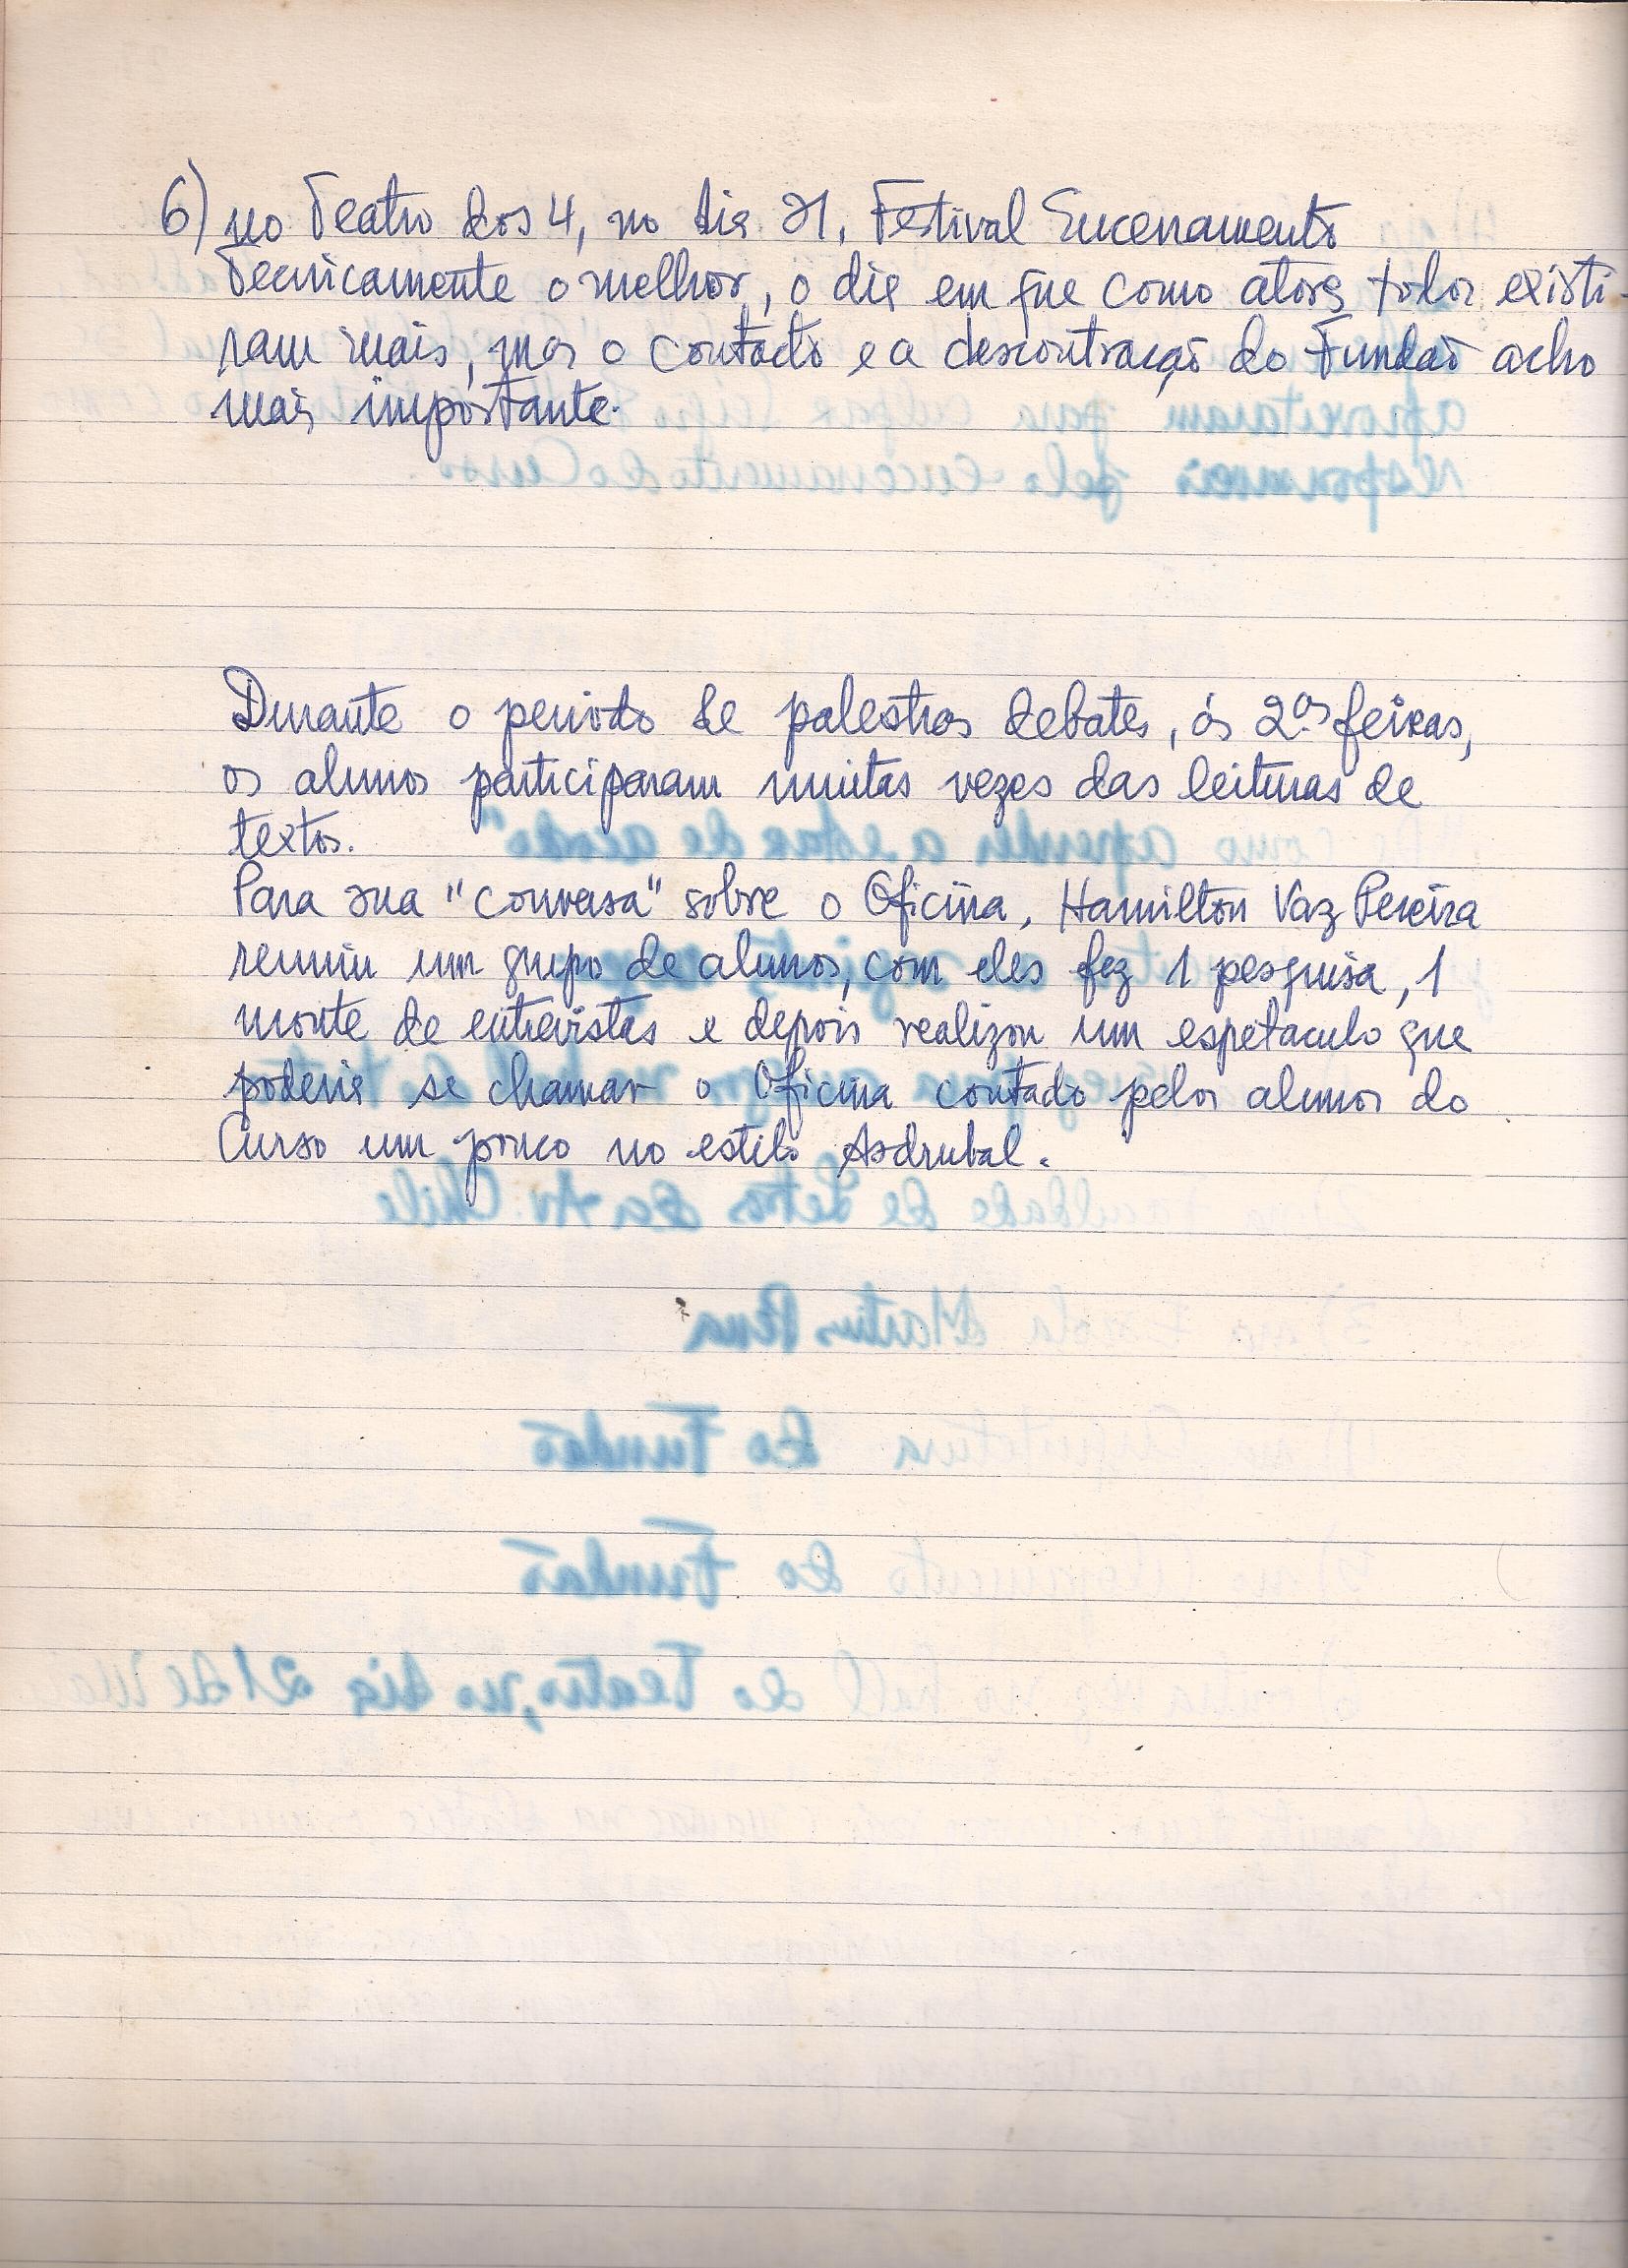 6) no Teatro dos 4, no dia 21, Festival Encenamento
Tecnicamente o melhor, o dia em que como atores todos existi-
ram mais, mas o contacto e a descontração do Fundão acho
mais importante.
Durante o periodo de palestras debates, ás 2as feiras,
os alunos participaram muitas vezes das leituras de
textos.
Para sua "conversa" sobre o Oficina, Hamilton Vaz Pereira
reuniu um grupo de alunos, com eles fez 1 pesquisa, 1
monte de entrevistas e depois realizou um espetaculo que
poderia se chamar o Oficina contado pelos alunos do
Curso um pouco no estilo Asdrubal.